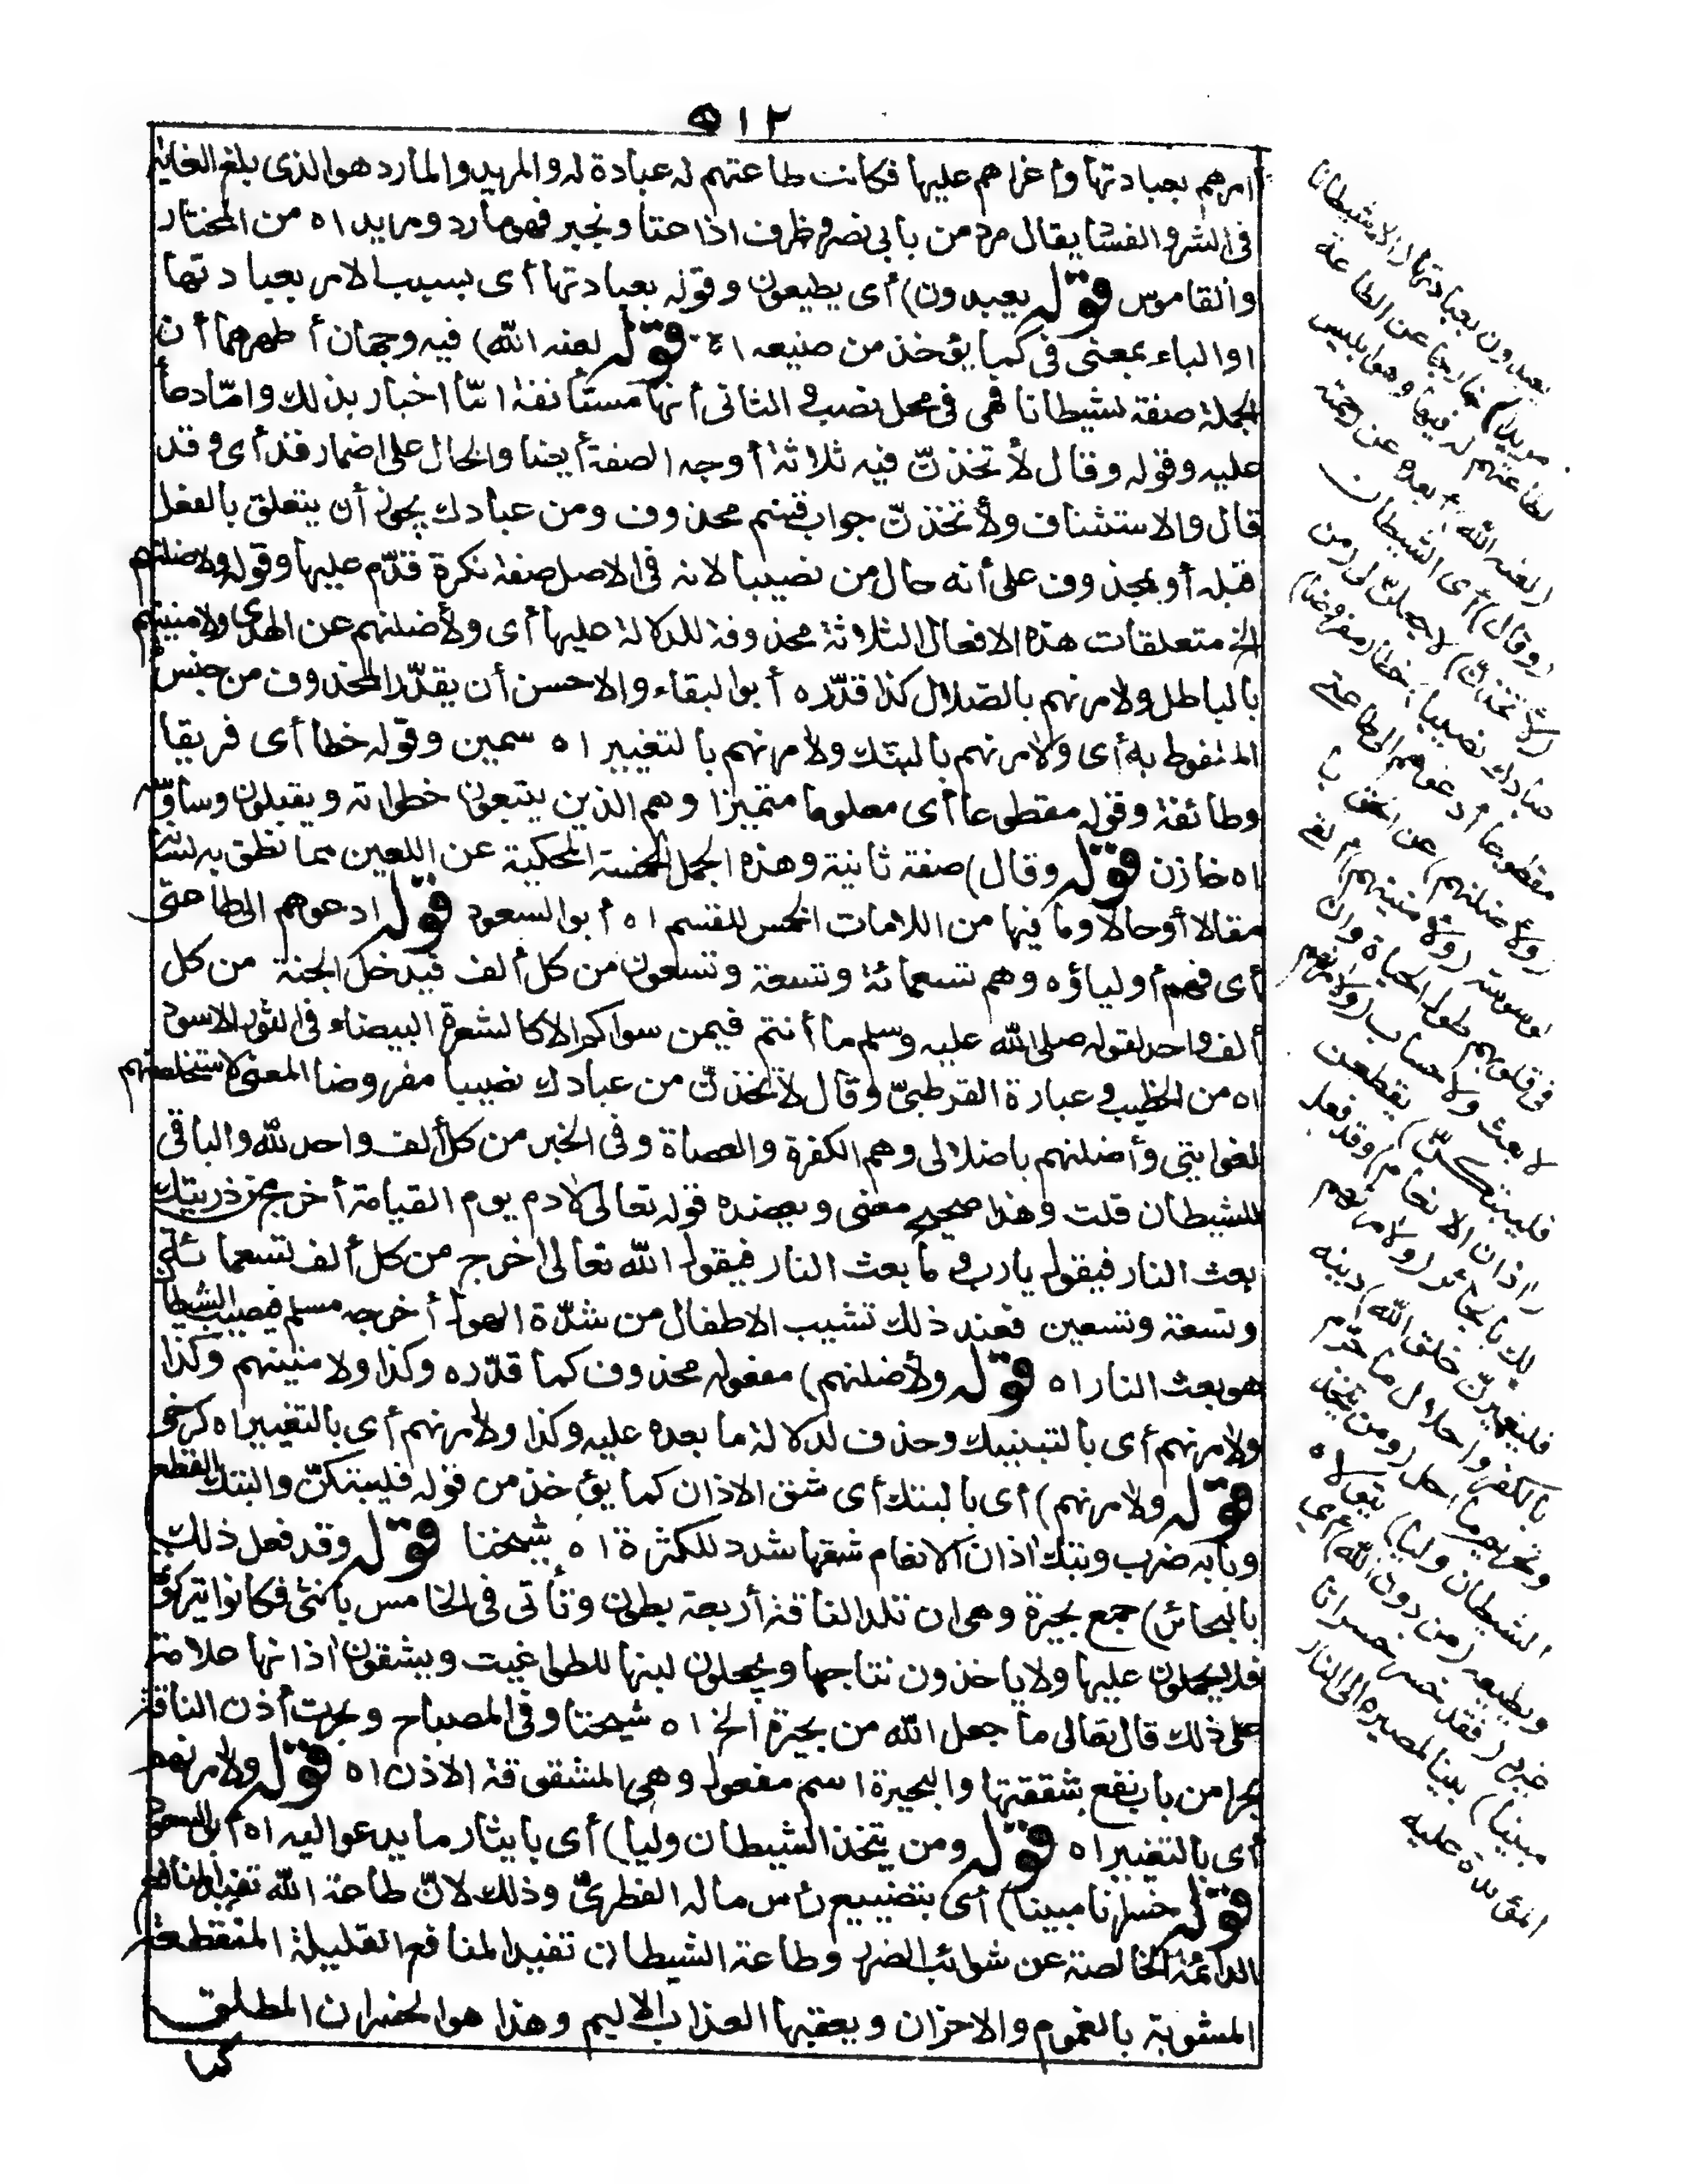 ٥١٢
امرهم بعبادتها وأغراهم عليها فكانت طاعتهم له عبادة له والمريد والمارد هو الذى بلغ الغاية
فى الشر والفساد يقال مرد من بابى نصر وظرف اذا عتا وتجبر فهو مارد ومريد اه من المختار
والقاموس قوله يعبدون) أى يطيعون وقوله بعبادتها أى بسبب الامر بعبادتها
اوالباء بمعنى فى كما يؤخذ من صنيعه اه قوله لعنه الله) فيه وجهان أظهرهما أن
الجملة صفة لشيطانا فهى فى محل نصب والثانى أنها مستأنفة امّا اخبار بذلك وامّا دعاء
عليه وقوله وقال لأتخذنّ فيه ثلاثة أوجه الصفة أيضا والحال على اضمار قد أى وقد
قال والاستئناف ولأتخذنّ جواب قسم محذوف ومن عبادك يجوز أن يتعلق بالفعل
قبله أو بمحذوف على أنه حال من نصيبا لانه فى الاصل صفة نكرة قدّم عليها وقوله ولاضلنهم
الخ متعلقات هذه الافعال الثلاثة محذوفة للدلالة عليها أى ولأضلنهم عن الهدى ولامنينهم
بالباطل ولامرنهم بالضلال كذا قدّره أبوالبقاء والاحسن أن يقدّر المحذوف من جنس
الملفوظ به أى ولامرنهم بالبتك ولامرنهم بالتغيير اه سمين وقوله خطا أى فريقا
وطائفة وقوله مقطوعا أى معلوما متميزا وهم الذين يتبعون خطواته ويقبلون وساوسه
اه خازن قوله وقال) صفة ثانية وهذه الجمل الخمسة المحكية عن اللعين مما نطق به لسانه
مقالا أو حالا وما فيها من اللامات الخمس للقسم اه أبوالسعود قوله ادعوهم الى طاعتى
أى فهم أولياؤه وهم تسعمائة وتسعة وتسعون من كل ألف فيدخل الجنة من كل
ألف واحد لقوله صلى الله عليه وسلم ما أنتم فيمن سواكم الا كالشعرة البيضاء فى الثور الاسود
اه من الخطيب وعبارة القرطبىّ وقال لأتخذنّ من عبادك نصيبا مفروضا المعنى لاستخلصنهم
لغوايتى وأضلنهم باضلالى وهم الكفرة والعصاة وفى الخبر من كل ألف واحد لله والباقى
للشيطان قلت وهذا صحيح معنى ويعضده قوله تعالى لادم يوم القيامة أخرج من ذريتك
بعث النار فيقول يارب وما بعث النار فيقول الله تعالى أخرج من كل ألف تسعمائة
وتسعة وتسعين فعند ذلك تشيب الاطفال من شدّة الهول أخرجه مسلم فنصيب الشيطان
هو بعث النار اه قوله ولأضلنهم) مفعوله محذوف كما قدّره وكذا ولامنينهم وكذا
ولامرنهم أى بالتبتيك وحذف لدلالة ما بعده عليه وكذا ولامرنهم أى بالتغيير اه كرخى
قوله ولامرنهم) أى بالبتك أى شق الاذان كما يؤخذ من قوله فليبتكنّ والبتك القطع
وبابه ضرب وبتك اذان الانعام شقها شدد للكثرة اه شيخنا قوله وقد فعل ذلك
بالبحائر) جمع بحيرة وهى ان تلد الناقة أربعة بطون وتأتى فى الخامس بأنثى فكانوا يتركونها
فلا يحملون عليها ولا ياخذون نتاجها ويجعلون لبنها للطواغيت ويشقون اذانها علامة
على ذلك قال تعالى ما جعل الله من بحيرة الخ اه شيخنا وفى المصباح وبحرت أذن الناقة
بحرا من باب نفع شققتها والبحيرة اسم مفعول وهى المشقوقة الاذن اه قوله ولامرنهم
أى بالتغيير اه قوله ومن يتخذ الشيطان وليا) أى بايثار ما يدعو اليه اه أبى السعود
قوله خسرانا مبينا) أى بتضييع رأس ماله الفطرىّ وذلك لانّ طاعة الله تفيد المنافع
الدائمة الخالصة عن شوائب الضرر وطاعة الشيطان تفيد المنافع القليلة المنقطعة
المشوبة بالغموم والاحزان ويعقبها العذاب الاليم وهذا هو الخسران المطلق
كما
يعبدون بعبادتها (الا شيطانا
مريدا) خارجا عن الطاعة
لطاعتهم له فيها وهو ابليس
(لعنه الله) أبعده عن رحمته
(وقال) أى الشيطان
(لأتخذنّ) لاجعلنّ لى (من
عبادك نصيبا) خطا (مفروضا)
مقطوعا أدعوهم الى طاعتى
(ولأضلنهم) عن الحق با
لوسوسة (ولأمنينهم) ألقى
فى قلوبهم طول الحياة وان
لا بعث ولا حساب (ولأمرنهم
فليبتكنّ) يقطعن
(اذان الانعام) وقد فعل ذ
لك بالبحائر (ولامرنهم
فليغيرنّ خلق الله) دينه
بالكفر واحلال ما حرّم
وتحريم ما أحل (ومن يتخذ
الشيطان وليا) يتولاه
ويطيعه (من دون الله) أى
غيره (فقد خسر خسرانا
مبينا) بينا لمصيره الى النار
المؤبدة عليه